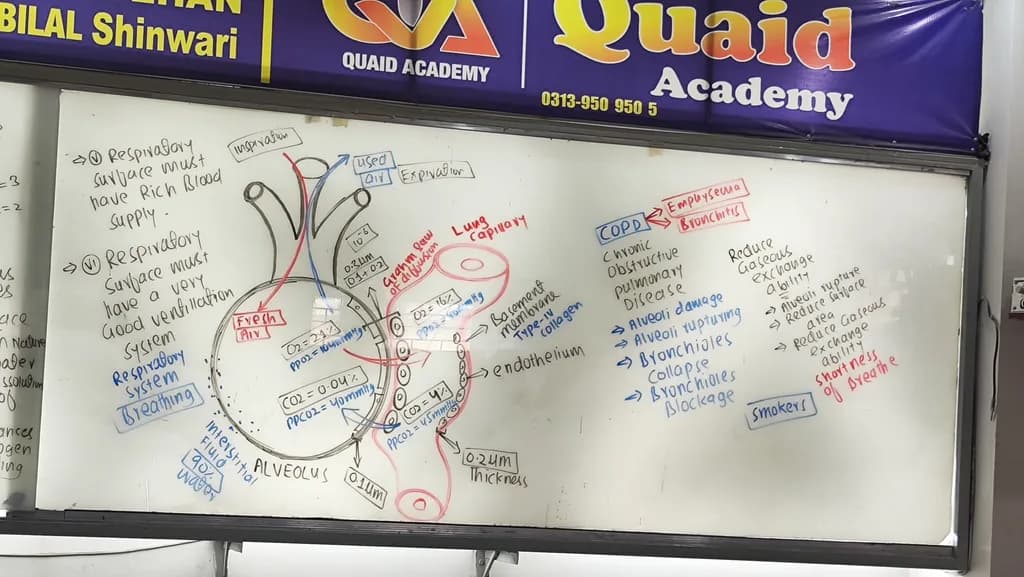 BILAL Shinwari
QUAID ACADEMY
Quaid
Academy
0313-950 950 5
(V) Respiratory
surface must
have Rich Blood
supply.
(VI) Respiratory
surface must
have a very
Good ventillation
system
Respiratory
system
Breathing
Interstitial
Fluid
90%
Water
inspiration
used
Air
Expiration
Fresh
Air
O2 = 21%
CO2 = 0.04%
PPCO2 = 40mmHg
ALVEOLUS
0.1µm
10-6
0.2µm
Graham law
of diffusion
Lung
Capillary
O2 = 16%
PPO2 = 40mmHg
CO2 = 4%
PPCO2 = 45mmHg
Basement
membrane
Type-IV
Collagen
endothelium
0.2µm
Thickness
COPD
Emphysema
Bronchitis
Chronic
Obstructive
pulmonary
Disease
Alveoli damage
Alveoli rupturing
Bronchioles
Collapse
Bronchioles
Blockage
Reduce
Gaseous
exchange
ability
Alveoli rupture
Reduce surface
area
Reduce Gaseous
exchange
ability
shortness
of Breathe
smokers